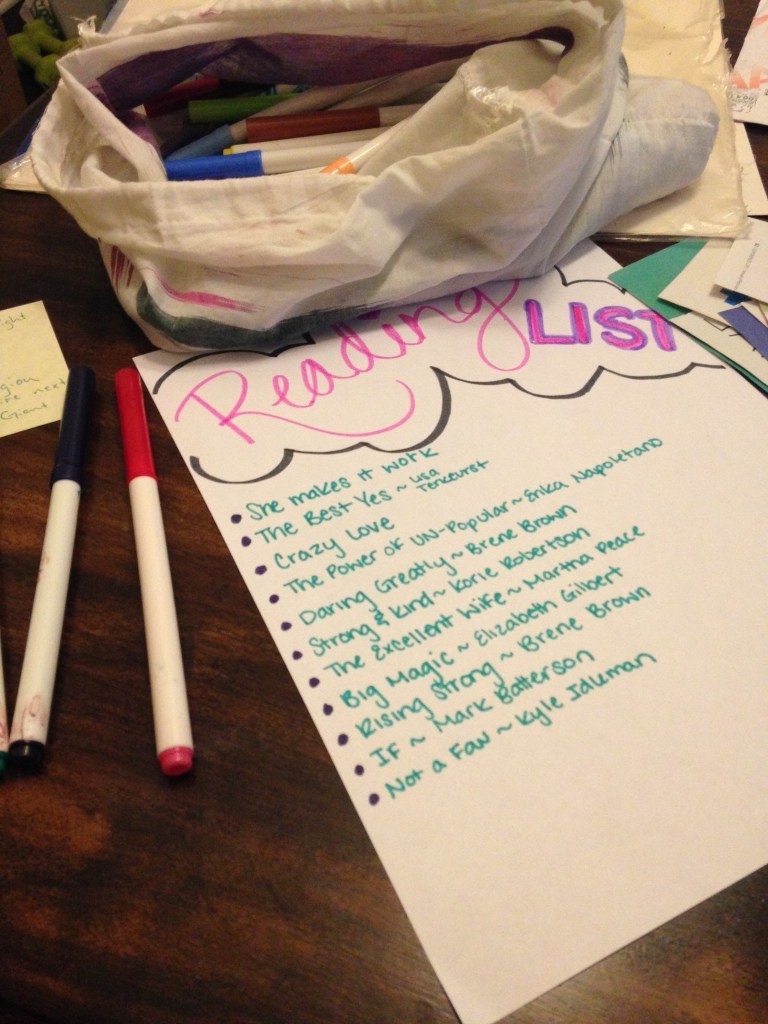 Reading LIST
She makes it work
The Best Yes ~ Lisa Terkeurst
Crazy Love
The Power of UN-Popular ~ Erika Napoletano
Daring Greatly ~ Brene Brown
Strong & Kind ~ Korie Robertson
The Excellent Wife ~ Martha Peace
Big Magic ~ Elizabeth Gilbert
Rising Strong ~ Brene Brown
IF ~ Mark Batterson
Not a Fan ~ Kyle Idleman